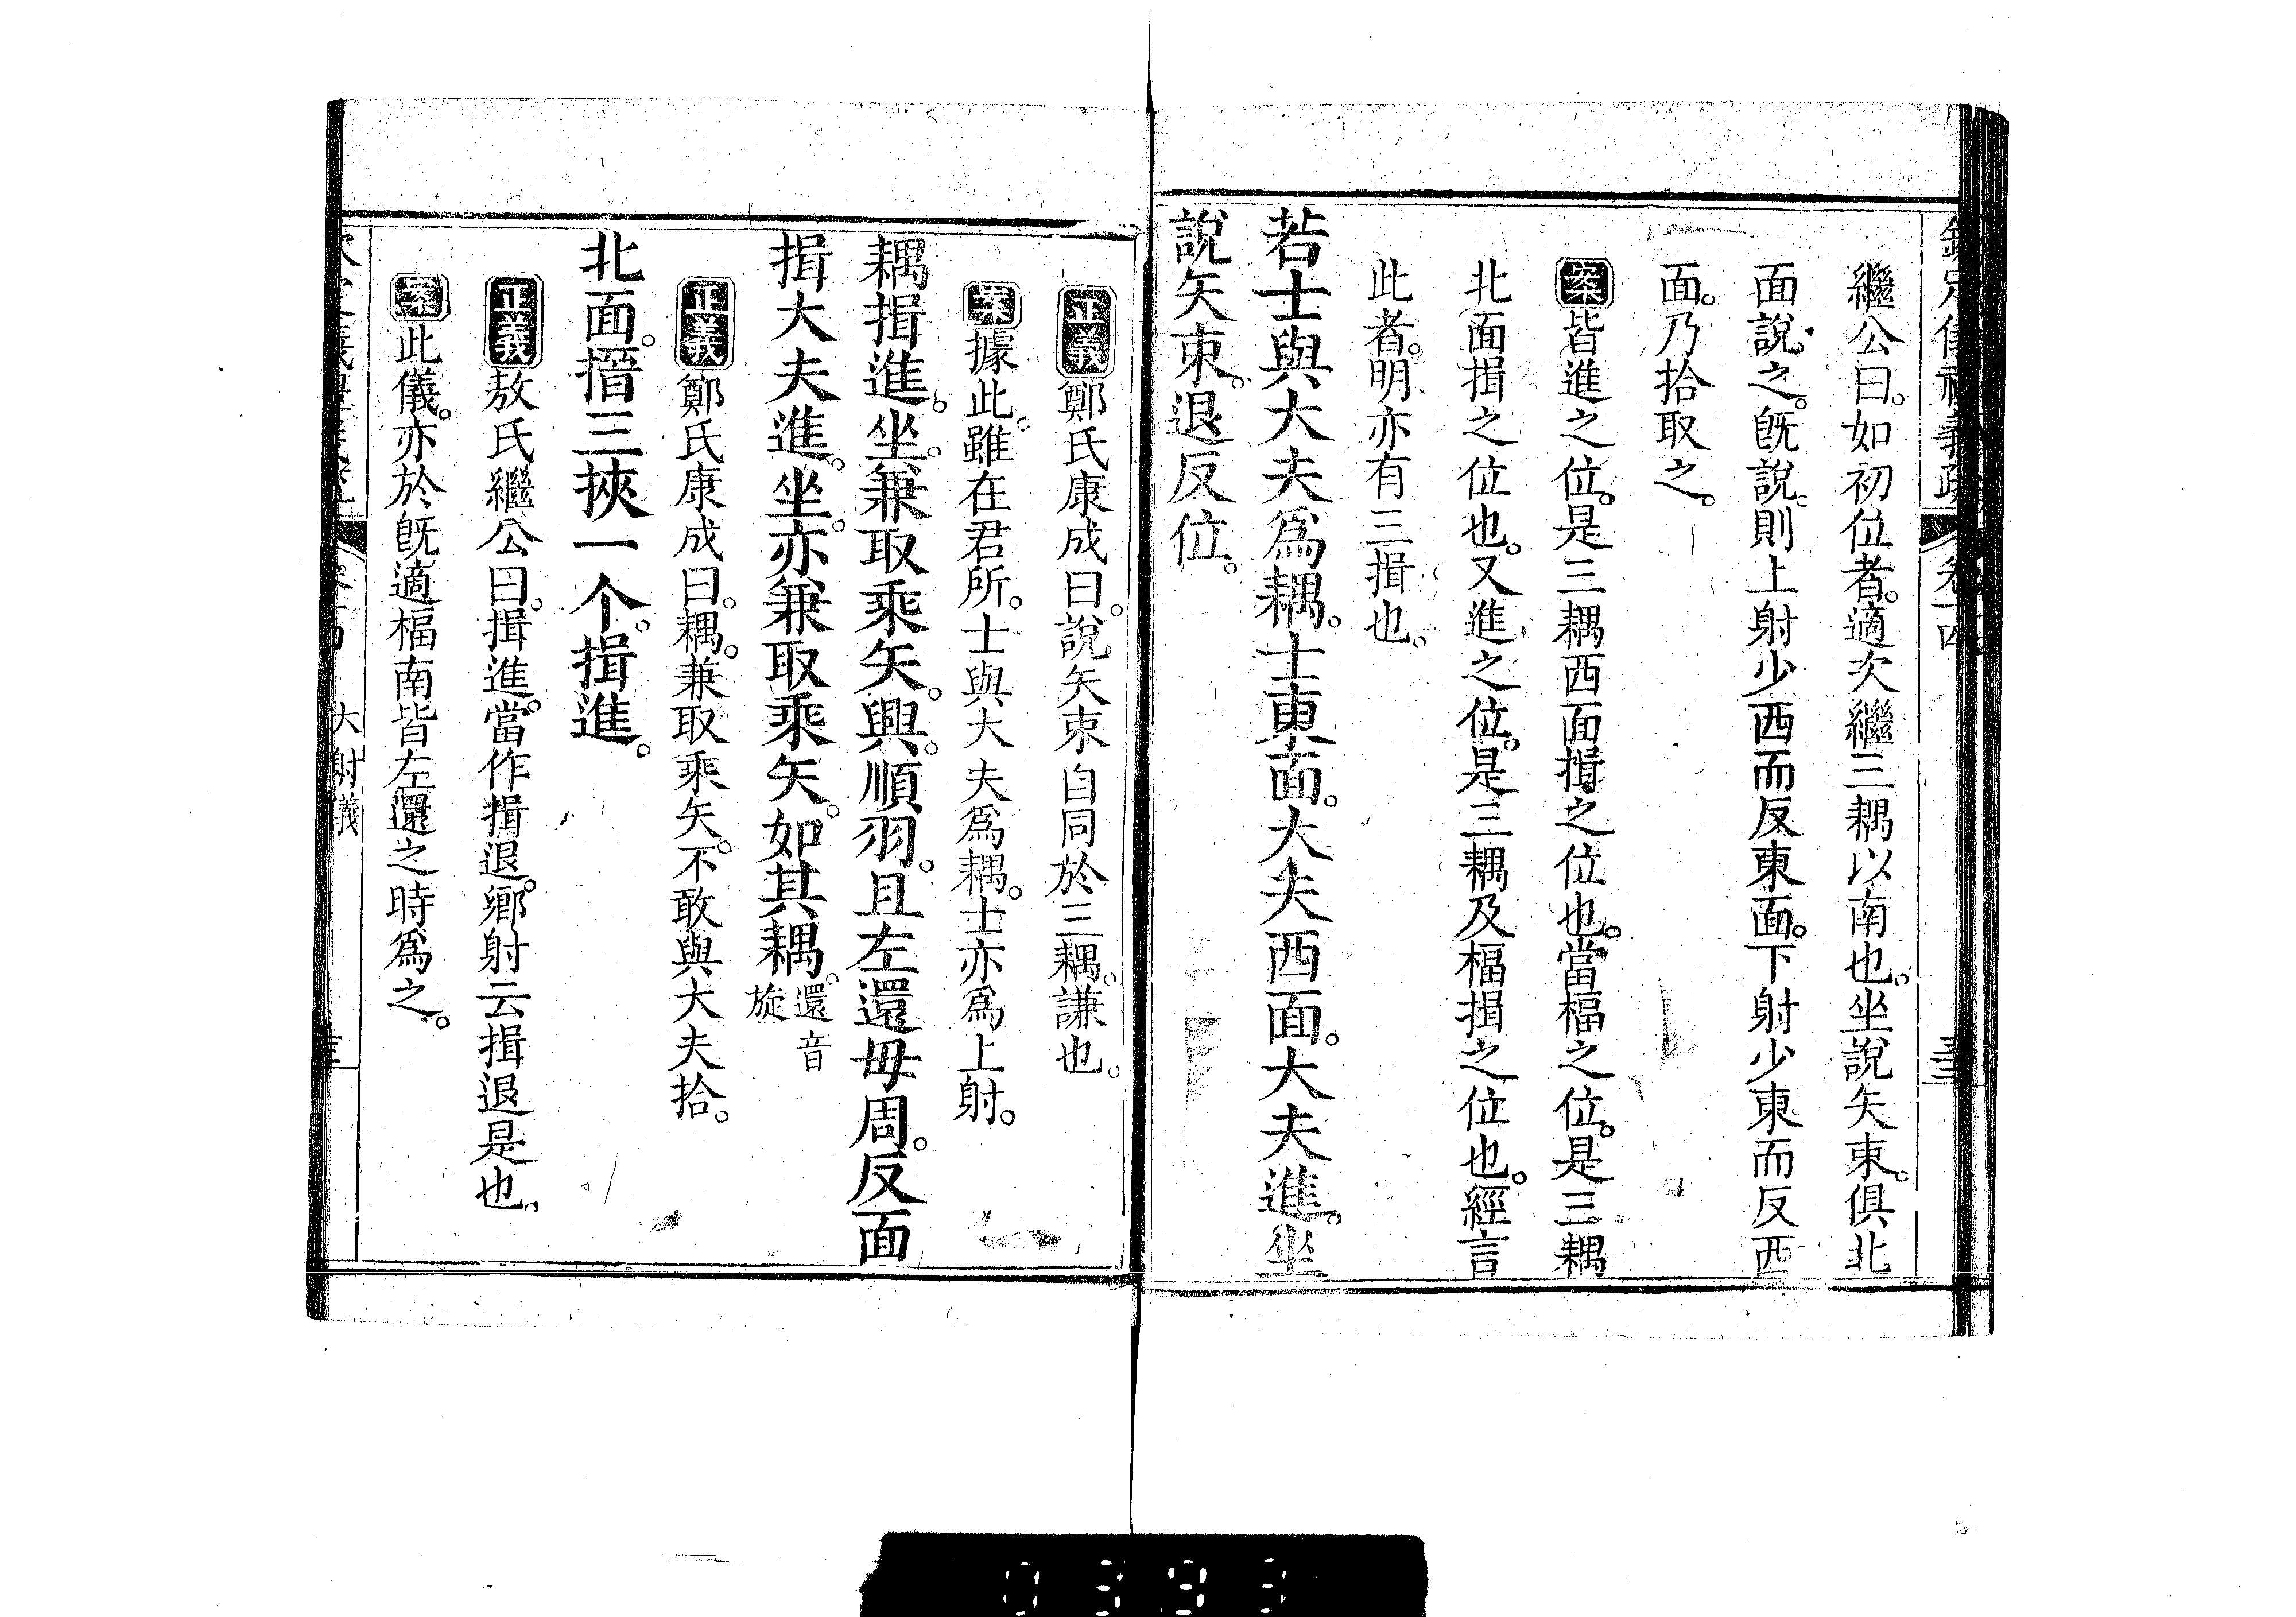 繼公曰。如初位者。適次繼三耦以南也。坐說矢束。俱北
面說之。旣說。則上射少西而反東面。下射少東而反西
面。乃拾取之。
案皆進之位。是三耦西面揖之位也。當楅之位。是三耦
北面揖之位也。又進之位。是三耦及楅揖之位也。經言
此者。明亦有三揖也。
若士與大夫爲耦。士東面。大夫西面。大夫進。坐
說矢束。退反位。
正義鄭氏康成曰。說矢束自同於三耦。謙也。
案據此。雖在君所。士與大夫爲耦。士亦爲上射。
耦揖進。坐。兼取乘矢。興。順羽。且左還毋周。反面
揖大夫進。坐。亦兼取乘矢。如其耦。還音旋
正義鄭氏康成曰。耦。兼取乘矢。不敢與大夫拾。
北面。搢三挾一个。揖進。
正義敖氏繼公曰。揖進。當作揖退。鄉射云揖退是也。
案此儀。亦於旣適楅南皆左還之時爲之。
大射儀
0393